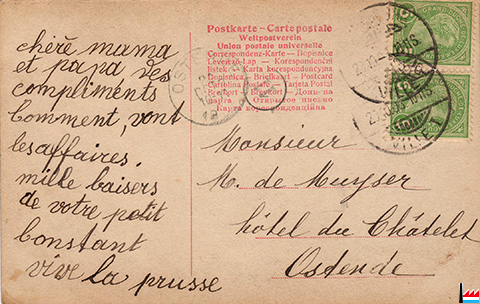 Postkarte - Carte postale
Weltpostverein
Union postale universelle
Correspondenz-Karte - Dopisnice
Levelező-Lap - Korespondencní
lístek - Karta korespondencyjna
Dopisnica - Briefkaart - Postcard
Cartolina Postale - Tarjeta Postal
Brefkort - Brevkort
Открытое письмо
Карта кореспонденційна
chère mama
et papa des
compliments
Comment, vont
les affaires.
mille baisers
de votre petit
Constant
vive la prusse
Monsieur
M. de Muyser
hôtel du Châtelet
Ostende
VILLE